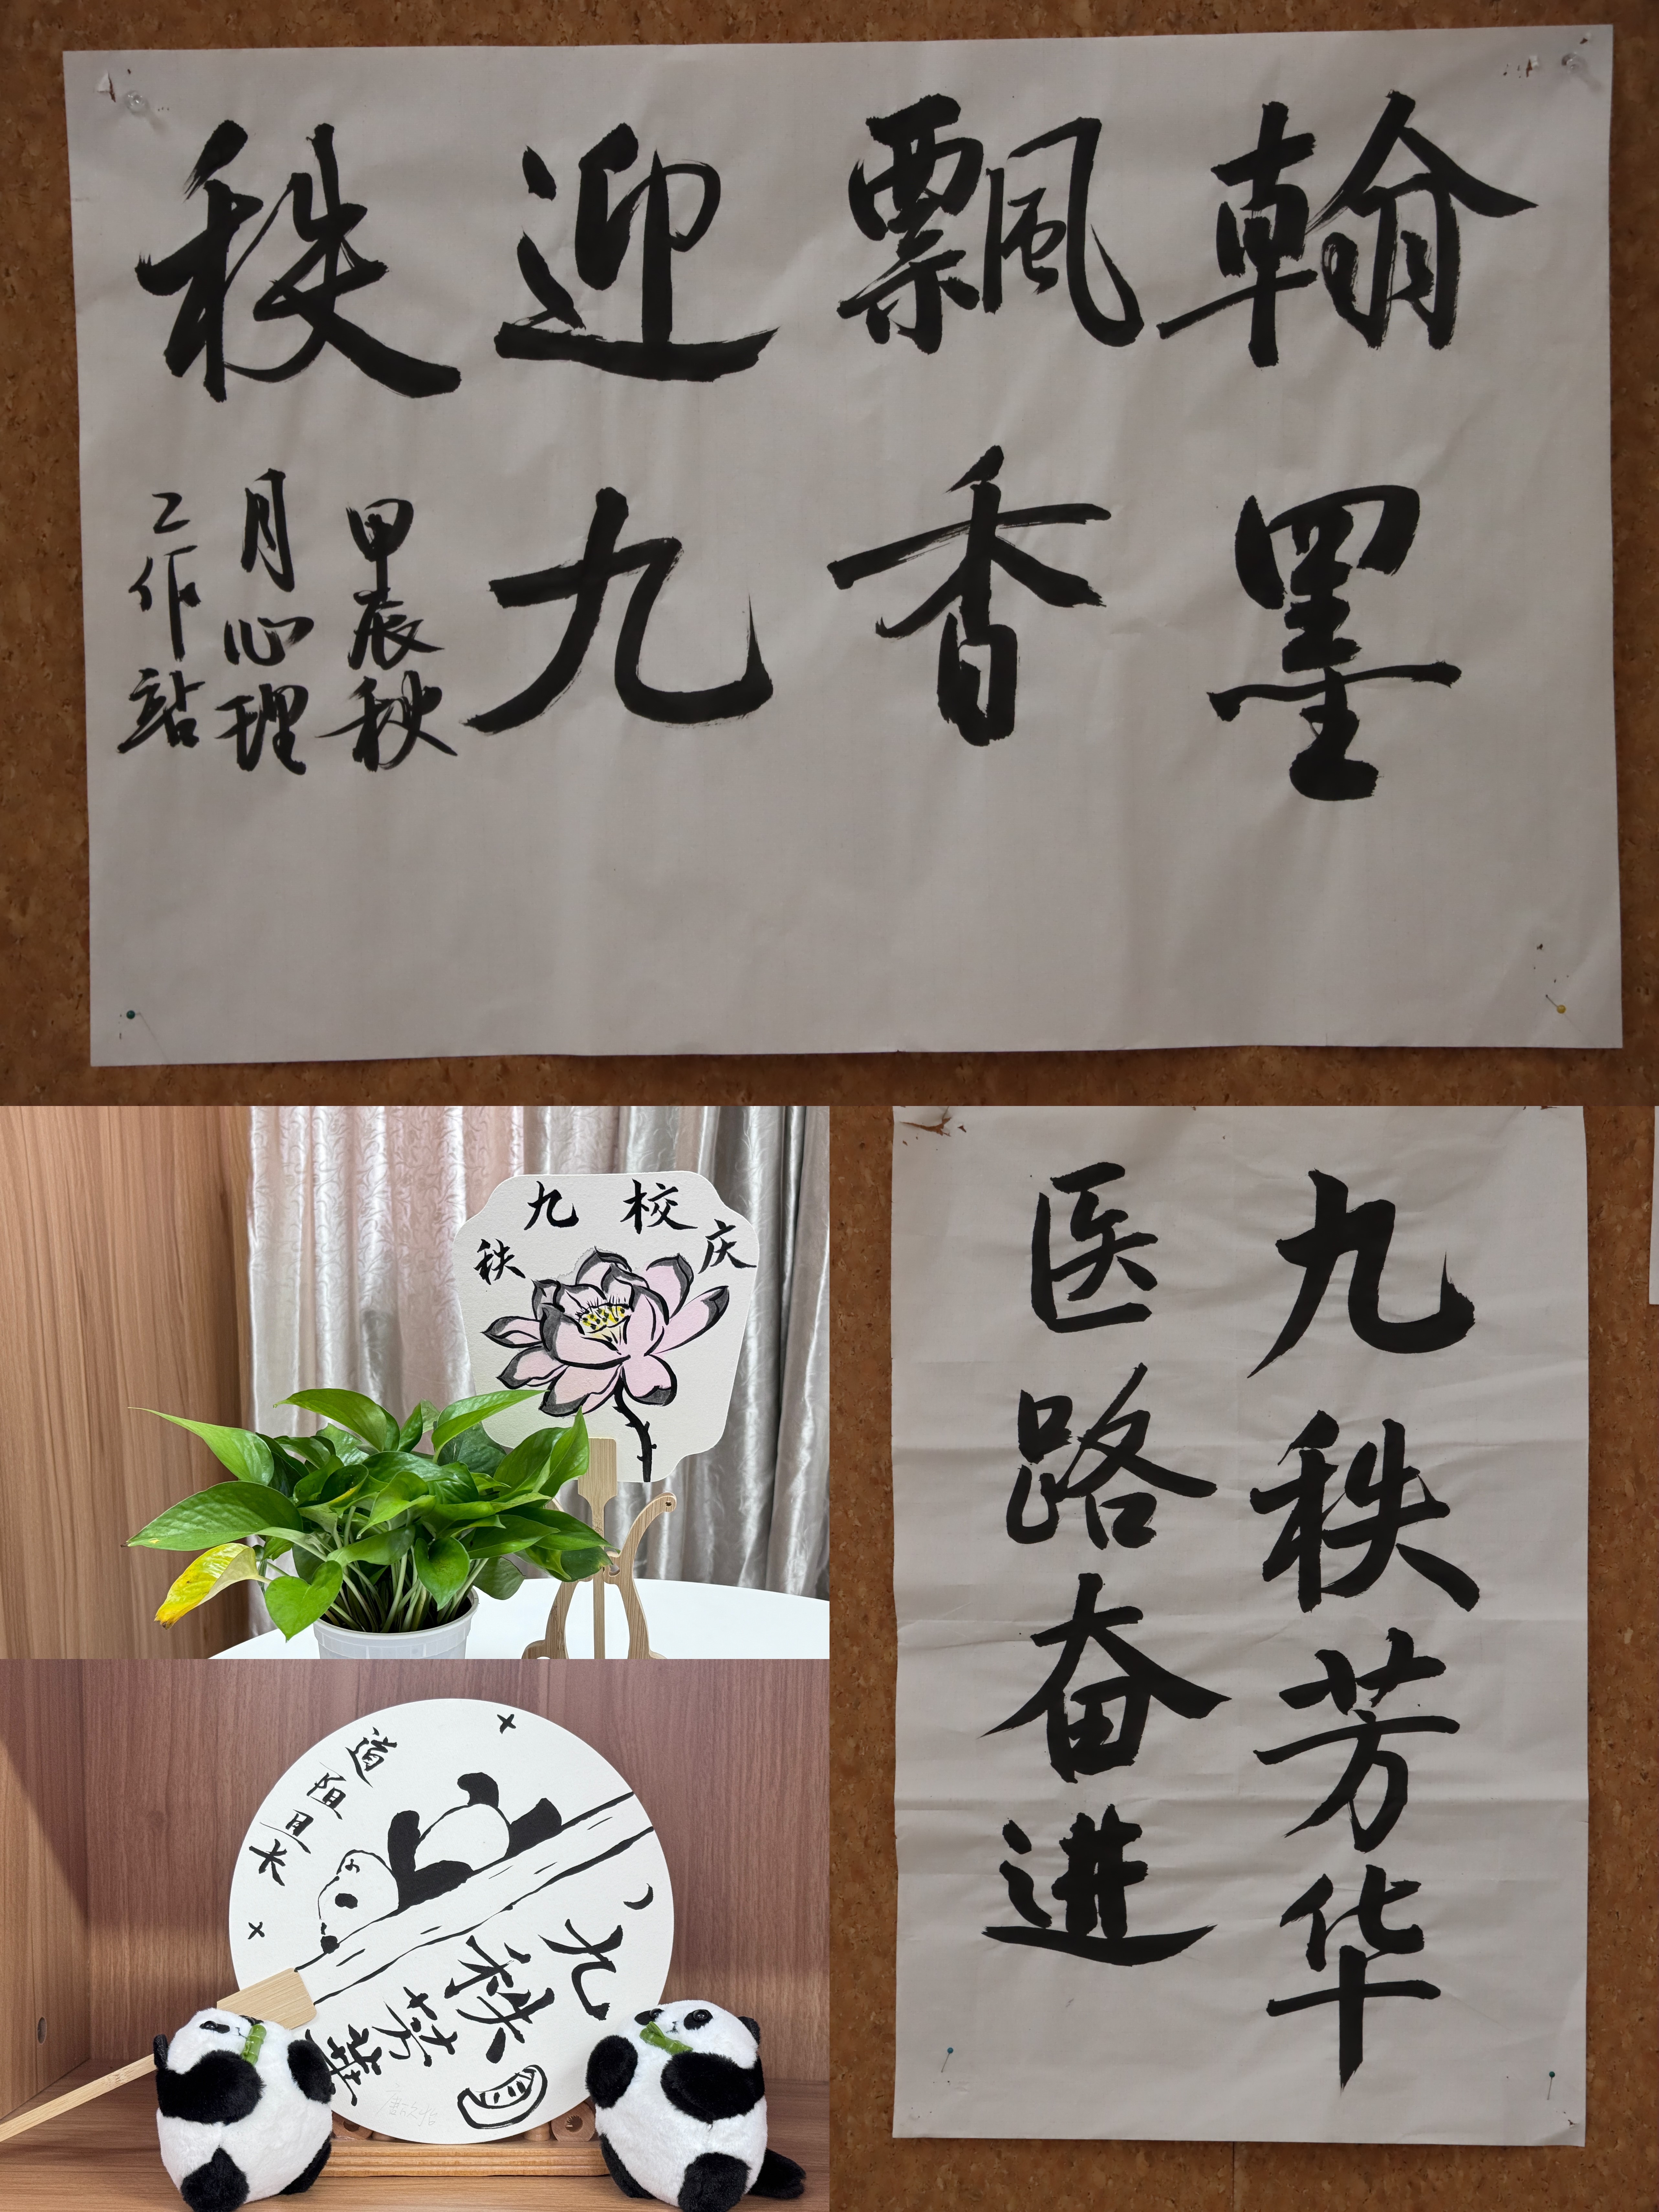 翰墨
飄香
迎九
秩
甲辰秋
月心理
工作站
秩九校庆
九秩芳华
医路奋进
道阻且长
九秩芳華